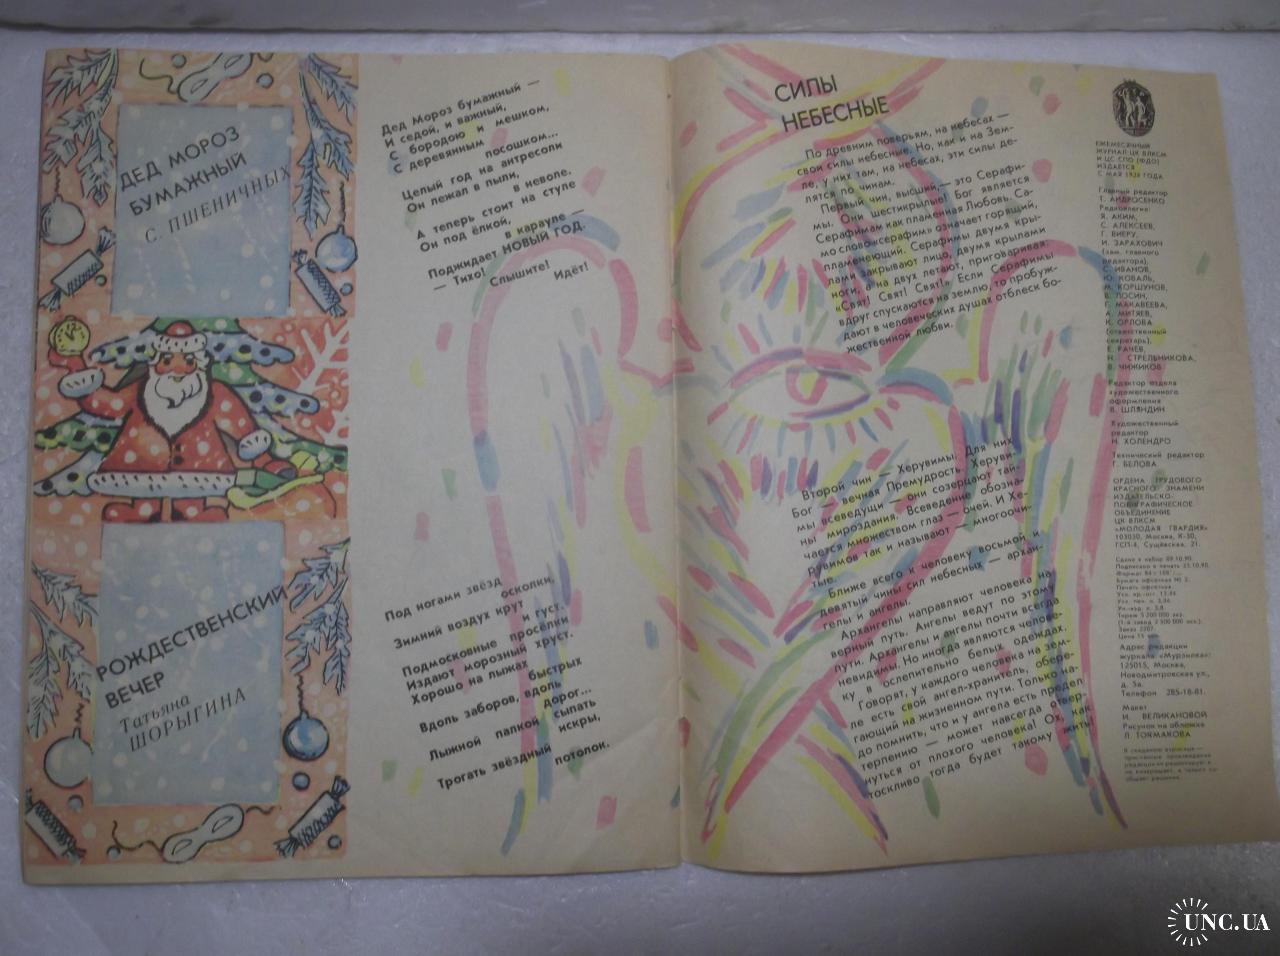 ДЕД МОРОЗ
БУМАЖНЫЙ
С. ПШЕНИЧНЫХ
Дед Мороз бумажный —
И седой, и важный,
С бородою и мешком,
С деревянным
посошком...
Целый год на антресоли
Он лежал в пыли,
в неволе.
А теперь стоит на стуле
Он под ёлкой,
в карауле —
Поджидает НОВЫЙ ГОД.
— Тихо! Слышите!
Идёт!
РОЖДЕСТВЕНСКИЙ
ВЕЧЕР
Татьяна
ШОРЫГИНА
Под ногами звёзд
осколки,
Зимний воздух крут
и густ.
Подмосковные просёлки
Издают морозный хруст.
Хорошо на лыжах
быстрых
Вдоль заборов, вдоль
дорог...
Лыжной палкой сыпать
искры,
Трогать звёздный
потолок.
СИЛЫ
НЕБЕСНЫЕ
По древним поверьям, на небесах —
свои силы небесные. Но, как и на Зем-
ле, у них там, на небесах, эти силы де-
лятся по чинам.
Первый чин, высший,— это Серафи-
мы. Они шестикрылые. Бог является
Серафимам как пламенная Любовь. Са-
мо слово «серафим» означает горящий,
пламенеющий. Серафимы двумя кры-
лами закрывают лицо, двумя крылами
ноги, а на двух летают, приговаривая:
«Свят! Свят! Свят!» Если Серафимы
вдруг спускаются на землю, то пробуж-
дают в человеческих душах отблеск бо-
жественной любви.
Второй чин — Херувимы. Для них
Бог — вечная Премудрость. Херуви-
мы всеведущи — они созерцают тай-
ны мироздания. Всеведение обозна-
чается множеством глаз — очей. И Хе-
рувимов так и называют — многоочи-
тые.
Ближе всего к человеку восьмой и
девятый чины сил небесных — архан-
гелы и ангелы.
Архангелы направляют человека на
верный путь. Ангелы ведут по этому
пути. Архангелы и ангелы почти всегда
невидимы. Но иногда являются челове-
ку в ослепительно белых одеждах.
Говорят, у каждого человека на зем-
ле есть свой ангел-хранитель, обере-
гающий на жизненном пути. Только на-
до помнить, что и у ангела есть предел
терпению — может навсегда отвер-
нуться от плохого человека! Ох, как
тоскливо тогда будет такому жить!
ЕЖЕМЕСЯЧНЫЙ
ЖУРНАЛ ЦК ВЛКСМ
И ЦС СПО (ФДО)
ИЗДАЕТСЯ
С МАЯ 1924 ГОДА
Главный редактор
Т. АНДРОСЕНКО
Редколлегия:
Я. АКИМ,
С. АЛЕКСЕЕВ,
Г. ВИЕРУ,
И. ЗАРАХОВИЧ
(зам. главного
редактора),
С. ИВАНОВ,
Ю. КОВАЛЬ,
М. КОРШУНОВ,
В. ЛОСИН,
Г. МАКАВЕЕВА,
А. МИТЯЕВ,
К. ОРЛОВА
(ответственный
секретарь),
Е. РАЧЕВ,
Н. СТРЕЛЬНИКОВА,
В. ЧИЖИКОВ
Редактор отдела
художественного
оформления
В. ШЛЯНДИН
Художественный
редактор
Н. ХОЛЕНДРО
Технический редактор
Г. БЕЛОВА
ОРДЕНА ТРУДОВОГО
КРАСНОГО ЗНАМЕНИ
ИЗДАТЕЛЬСКО-
ПОЛИГРАФИЧЕСКОЕ
ОБЪЕДИНЕНИЕ
ЦК ВЛКСМ
«МОЛОДАЯ ГВАРДИЯ»
103030, Москва, К-30,
ГСП-4, Сущёвская, 21.
Сдано в набор 09.10.90.
Подписано в печать 23.10.90.
Бумага офсетная № 2.
Печать офсетная.
Тираж 5 200 000 экз.
Заказ 2207.
Адрес редакции
журнала «Мурзилка»:
125015, Москва,
Новодмитровская ул.,
д. 5а.
Телефон 285-18-81.
Макет
И. ВЕЛИКАНОВОЙ
Рисунок на обложке
Л. ТОКМАКОВА
UNC.UA